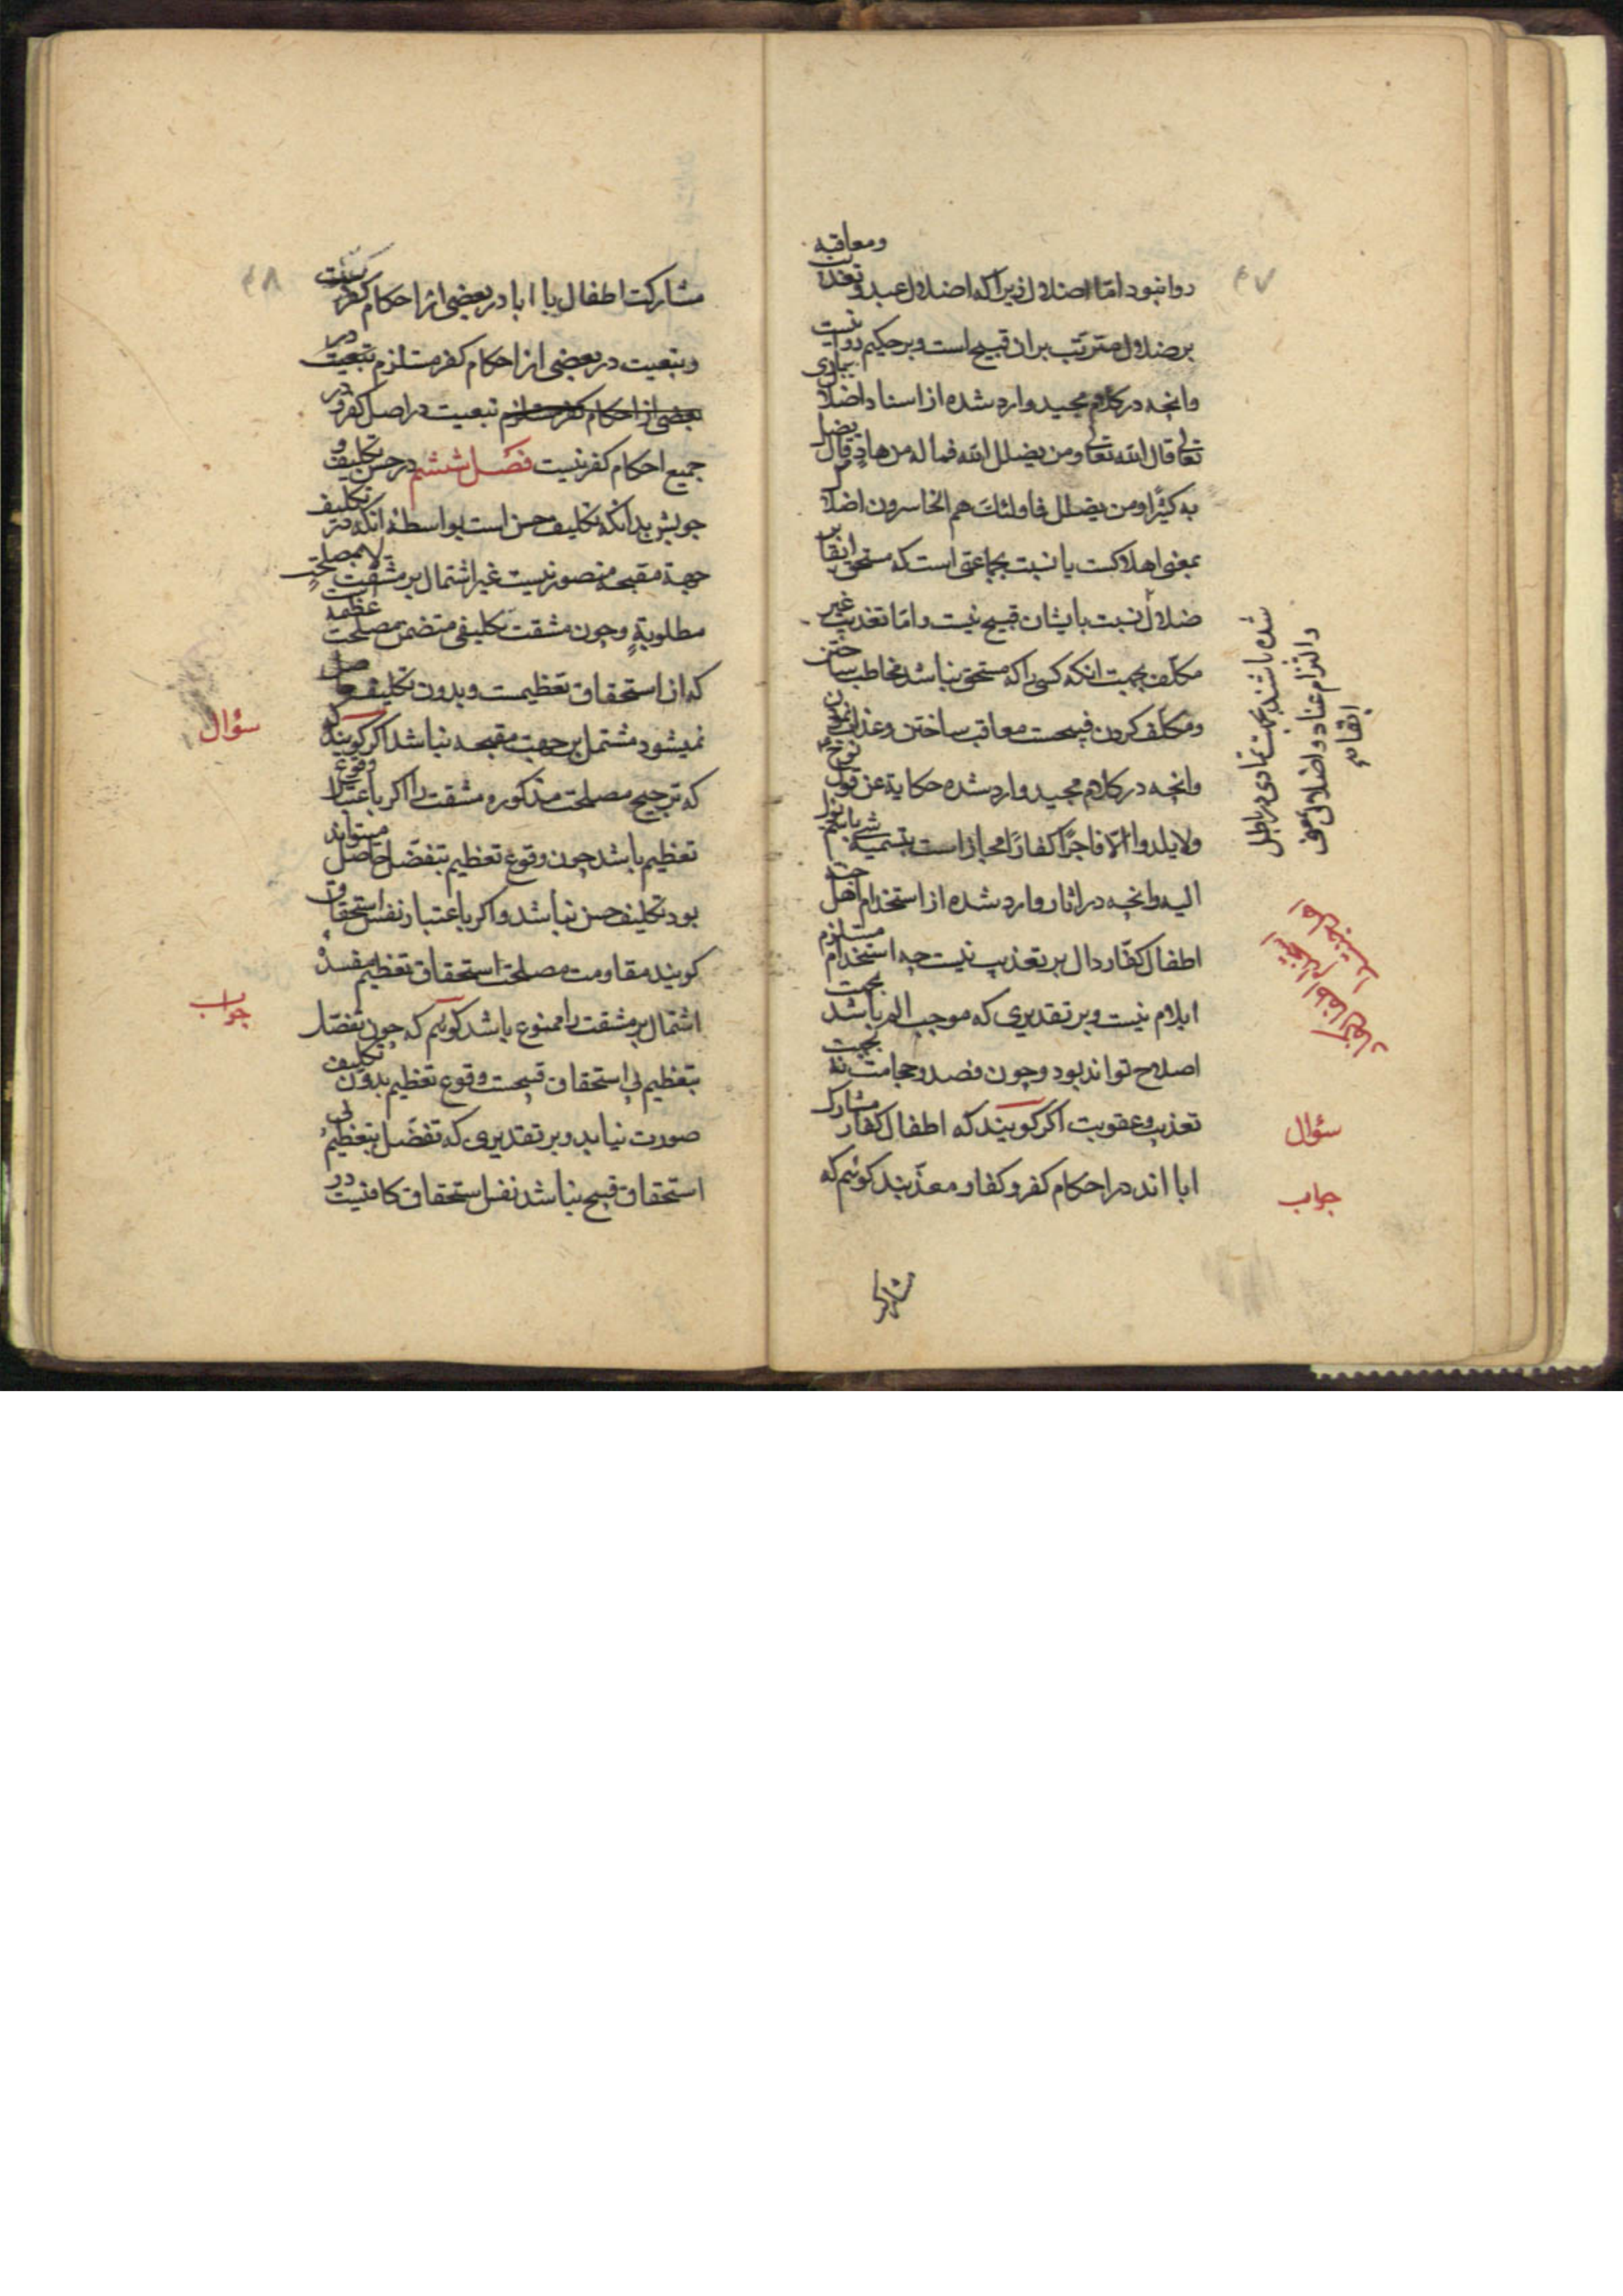 ۴۷
روا نبود اما اضلال زیرا که اضلال عبد و تعذیب ومعاقبه
بر ضلال مترتب بر ان قبیح است و بر حکیم روا نیست
وانچه در کلام مجید وارد شده از اسناد اضلال بباری
تعالی قال الله تعالی ومن یضلل الله فما له من هاد وقال یضل
به کثیرا ومن یضلل فاولئك هم الخاسرون اضلال
بمعنی اهلاکست یا نسبت بجماعتی است که مستحق ابقا بر
ضلال نسبت بایشان قبیح نیست واما تعذیب غیر
مکلف بجهت انکه کسی را که مستحق نباشد مخاطب ساختن
ومکلف کردن قبیحست معاقب ساختن وعذاب نمودن
وانچه در کلام مجید وارد شده حکایة عن قول نوح
ولا یلدوا الا فاجرًا کفارًا مجاز است بتسمیه شی بانچه
الیه وانچه در اثار وارد شده از استخدام اهل جنت
اطفال کفار دال بر تعذیب نیست چه استخدام مستلزم
ایلام نیست و بر تقدیری که موجب الم باشد بجهت
اصلاح تواند بود وچون فصد وحجامت نه بجهت
تعذیب وعقوبت اکر کویند که اطفال کفار مشارک
ابا اند در احکام کفر و کفار معذبند کوئیم که
شده باشند بجهت تمادی در باطل
والتزام عناد واضلال بمعنی
ابقاء
سؤال
جواب
مشارکت
۴۸
مشارکت اطفال با ابا در بعضی از احکام کفر نیست
وتبعیت در بعضی از احکام کفر مستلزم تبعیت در
بعضی از احکام کفر مستلزم تبعیت در اصل کفر ودر
جمیع احکام کفر نیست فصل ششم در حسن تکلیف و
جوبش بدانکه تکلیف حسن است بواسطهٔ انکه در تکلیف
جهة مقبحه متصور نیست غیر اشتمال بر مشقت لا بمصلحتٍ
مطلوبةٍ وچون مشقت تکلیفی متضمن مصلحت عظیمه است
که ان استحقاق تعظیمست وبدون تکلیف حاصل
نمیشود مشتمل بر جهت مقبحه نباشد اکر کویند
که ترجیح مصلحت مذکوره مشقت را اکر باعتبار وقوع
تعظیم باشد چون وقوع تعظیم بتفضل حاصل میتواند
بود تکلیف حسن نباشد واکر باعتبار نفس استحقاق
کویند مقاومت مصلحت استحقاق تعظیم مفسدهٔ
اشتمال بر مشقت را ممنوع باشد کوئیم که چون تفضل
بتعظیم بی استحقاق قبیحست وقوع تعظیم بدون تکلیف
صورت نیابد وبر تقدیری که تفضل بتعظیم بی
استحقاق قبیح نباشد نفس استحقاق کافیست در
سؤال
جواب